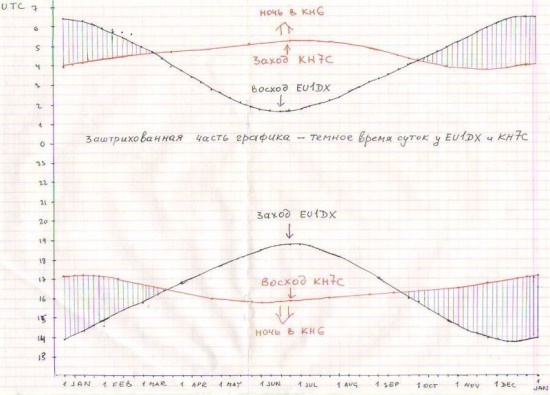 UTC
7
6
5
4
3
2
1
0
23
22
21
20
19
18
17
16
15
14
13
ночь в КН6
Заход КН7С
Восход EU1DX
Заштрихованная часть графика — темное время суток у EU1DX и КН7С
Заход EU1DX
Восход КН7С
ночь в КН6
1 JAN 1 FEB 1 MAR 1 APR 1 MAY 1 JUN 1 JUL 1 AUG 1 SEP 1 OCT 1 NOV 1 DEC 1 JAN